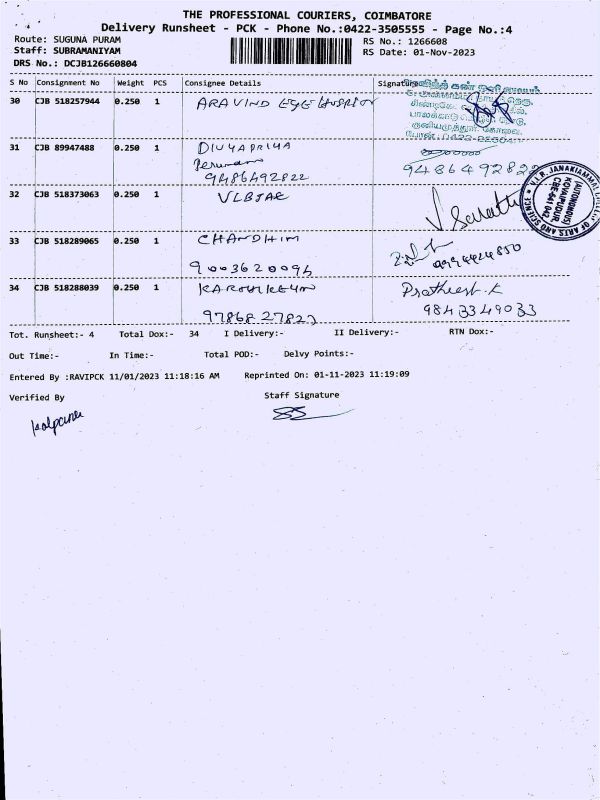 THE PROFESSIONAL COURIERS, COIMBATORE
Delivery Runsheet - PCK - Phone No.:0422-3505555 - Page No.:4
Route: SUGUNA PURAM
Staff: SUBRAMANIYAM
DRS No.: DCJB126660804
RS No.: 1266608
RS Date: 01-Nov-2023
S No Consignment No Weight PCS Consignee Details Signature
30 CJB 518257944 0.250 1 ARAVIND EYE
31 CJB 89947488 0.250 1 DIVYAPRIYA
9486492822
9486492822
32 CJB 518373063 0.250 1 VLBJAC
V.L.B. JANAKIAMMAL COLLEGE OF ARTS AND SCIENCE
(AUTONOMOUS)
KOVAIPUDUR,
CBE-641 042.
33 CJB 518289065 0.250 1
34 CJB 518288039 0.250 1
9843349033
Tot. Runsheet:- 4 Total Dox:- 34 I Delivery:- II Delivery:- RTN Dox:-
Out Time:- In Time:- Total POD:- Delvy Points:-
Entered By :RAVIPCK 11/01/2023 11:18:16 AM Reprinted On: 01-11-2023 11:19:09
Verified By Staff Signature